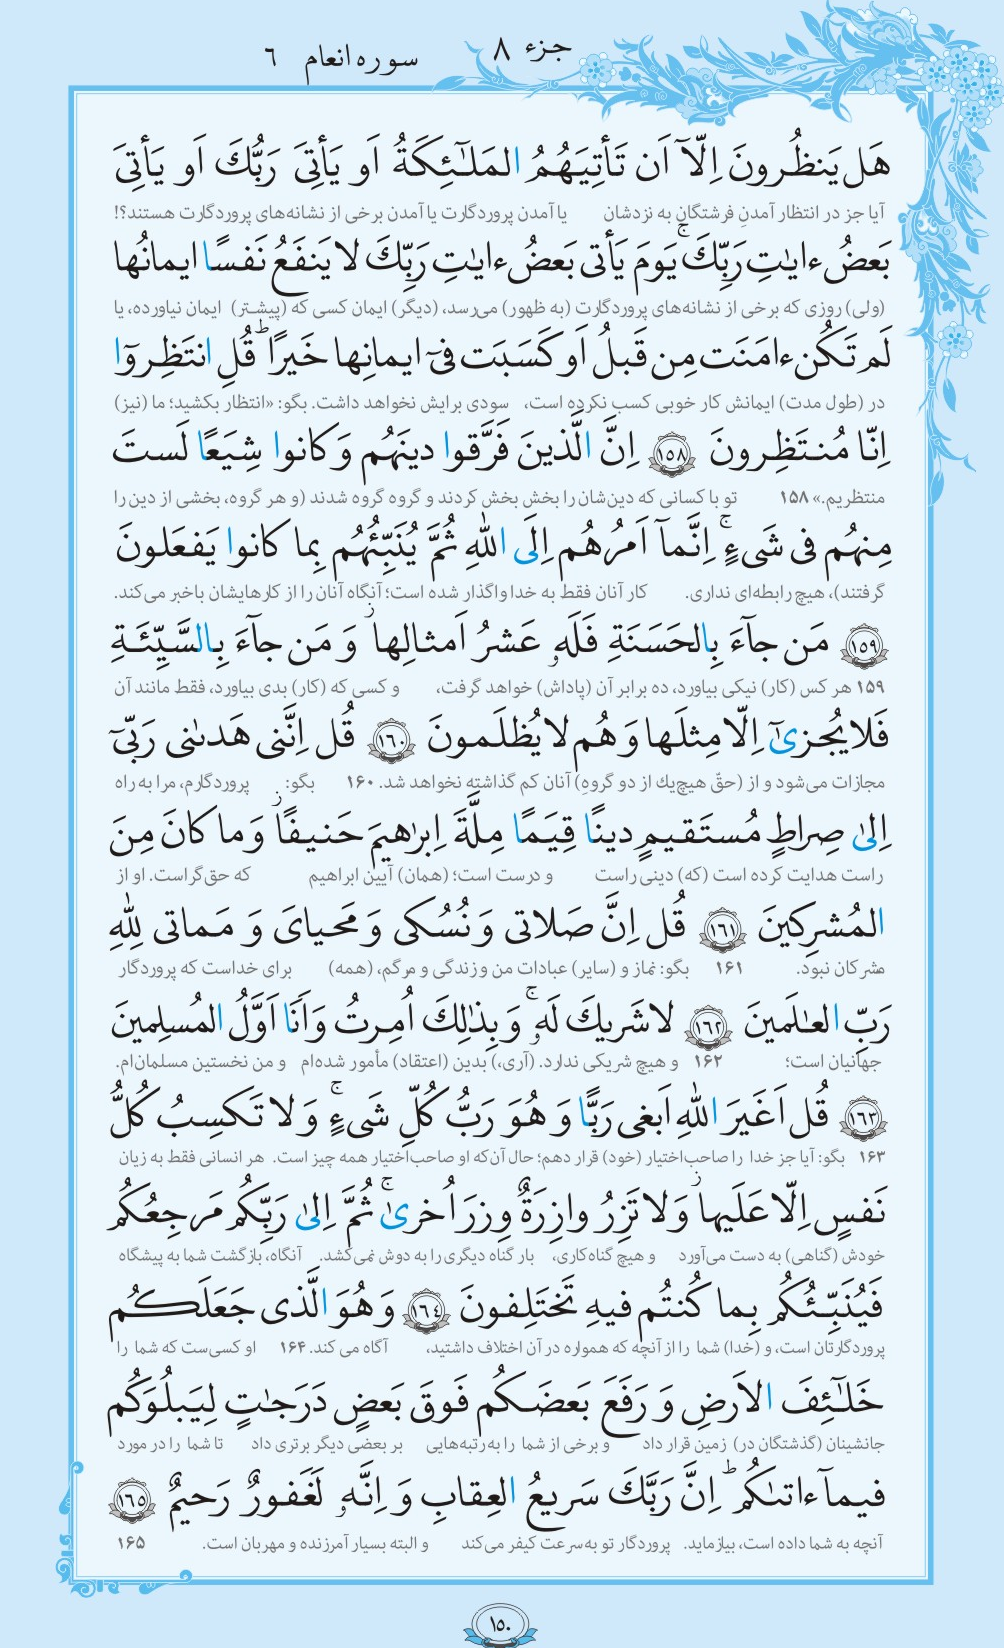 جزء ۸
سوره انعام ۶
هَل يَنظُرونَ اِلّآ اَن تَأتِيَهُمُ المَلٰٓئِكَةُ اَو يَأتِیَ رَبُّكَ اَو يَأتِیَ
آیا جز در انتظار آمدنِ فرشتگان به نزدشان یا آمدن پروردگارت یا آمدن برخی از نشانه‌های پروردگارت هستند؟!
بَعضُ ءایٰتِ رَبِّكَۚ يَومَ يَأتی بَعضُ ءایٰتِ رَبِّكَ لا يَنفَعُ نَفسًا ایمانُها
(ولی) روزی که برخی از نشانه‌های پروردگارت (به ظهور) می‌رسد، (دیگر) ایمان کسی که (پیشتر) ایمان نیاورده، یا
لَم تَكُن ءامَنَت مِن قَبلُ اَو كَسَبَت فیٓ ایمانِها خَيرًاؕ قُلِ انتَظِروٓا
در (طول مدت) ایمانش کار خوبی کسب نکرده است، سودی برایش نخواهد داشت. بگو: «انتظار بکشید؛ ما (نیز)
اِنّا مُنتَظِرونَ ۱۵۸ اِنَّ الَّذينَ فَرَّقوا دينَهُم وَ كانوا شِيَعًا لَستَ
منتظریم.» ۱۵۸ تو با کسانی که دین‌شان را بخش بخش کردند و گروه گروه شدند (و هر گروه، بخشی از دین را
مِنهُم فی شَیءٍۚ اِنَّمآ اَمرُهُم اِلَی اللهِ ثُمَّ يُنَبِّئُهُم بِما كانوا يَفعَلونَ
گرفتند)، هیچ رابطه‌ای نداری. کار آنان فقط به خدا واگذار شده است؛ آنگاه آنان را از کارهایشان باخبر می‌کند.
۱۵۹ مَن جآءَ بِالحَسَنَةِ فَلَهٗ عَشرُ اَمثالِهاز وَ مَن جآءَ بِالسَّيِّئَةِ
۱۵۹ هر کس (کار) نیکی بیاورد، ده برابر آن (پاداش) خواهد گرفت، و کسی که (کار) بدی بیاورد، فقط مانند آن
فَلا يُجزیٰٓ اِلّا مِثلَها وَ هُم لا يُظلَمونَ ۱۶۰ قُل اِنَّنی هَدیٰنی رَبّیٓ
مجازات می‌شود و از (حقّ هیچ‌یك از دو گروهِ) آنان کم گذاشته نخواهد شد. ۱۶۰ بگو: پروردگارم، مرا به راه
اِلیٰ صِراطٍ مُستَقيمٍ دينًا قِيَمًا مِلَّةَ اِبرٰهيمَ حَنيفًاز وَ ما كانَ مِنَ
راست هدایت کرده است (که) دینی راست و درست است؛ (همان) آیین ابراهیم که حق‌گراست. او از
المُشرِكينَ ۱۶۱ قُل اِنَّ صَلاتی وَ نُسُكی وَ مَحيایَ وَ مَماتی لِلّٰهِ
مشرکان نبود. ۱۶۱ بگو: نماز و (سایر) عبادات من و زندگی و مرگم، (همه) برای خداست که پروردگار
رَبِّ العٰلَمينَ ۱۶۲ لا شَريكَ لَهٗۚ وَ بِذٰلِكَ اُمِرتُ وَ اَنَا اَوَّلُ المُسلِمينَ
جهانیان است؛ ۱۶۲ و هیچ شریکی ندارد. (آری،) بدین (اعتقاد) مأمور شده‌ام و من نخستین مسلمان‌ام.
۱۶۳ قُل اَغَيرَ اللهِ اَبغی رَبًّا وَ هُوَ رَبُّ كُلِّ شَیءٍۚ وَ لا تَكسِبُ كُلُّ
۱۶۳ بگو: آیا جز خدا را صاحب‌اختیار (خود) قرار دهم؛ حال آن‌که او صاحب‌اختیار همه چیز است. هر انسانی فقط به زیان
نَفسٍ اِلّا عَلَيهاز وَ لا تَزِرُ وازِرَةٌ وِزرَ اُخریٰۚ ثُمَّ اِلیٰ رَبِّكُم مَرجِعُكُم
خودش (گناهی) به دست می‌آورد و هیچ گناه‌کاری، بار گناه دیگری را به دوش نمی‌کشد. آنگاه، بازگشت شما به پیشگاه
فَيُنَبِّئُكُم بِما كُنتُم فيهِ تَختَلِفونَ ۱۶۴ وَ هُوَ الَّذی جَعَلَكُم
پروردگارتان است، و (خدا) شما را از آنچه که همواره در آن اختلاف داشتید، آگاه می کند. ۱۶۴ او کسی‌ست که شما را
خَلٰٓئِفَ الاَرضِ وَ رَفَعَ بَعضَكُم فَوقَ بَعضٍ دَرَجٰتٍ لِيَبلُوَكُم
جانشینان (گذشتگان در) زمین قرار داد و برخی از شما را به رتبه‌هایی بر بعضی دیگر برتری داد تا شما را در مورد
فيمآ ءاتىٰكُمؕ اِنَّ رَبَّكَ سَريعُ العِقابِ وَ اِنَّهٗ لَغَفورٌ رَحيمٌ ۱۶۵
آنچه به شما داده است، بیازماید. پروردگار تو به‌سرعت کیفر می‌کند و البته بسیار آمرزنده و مهربان است. ۱۶۵
۱۵۰